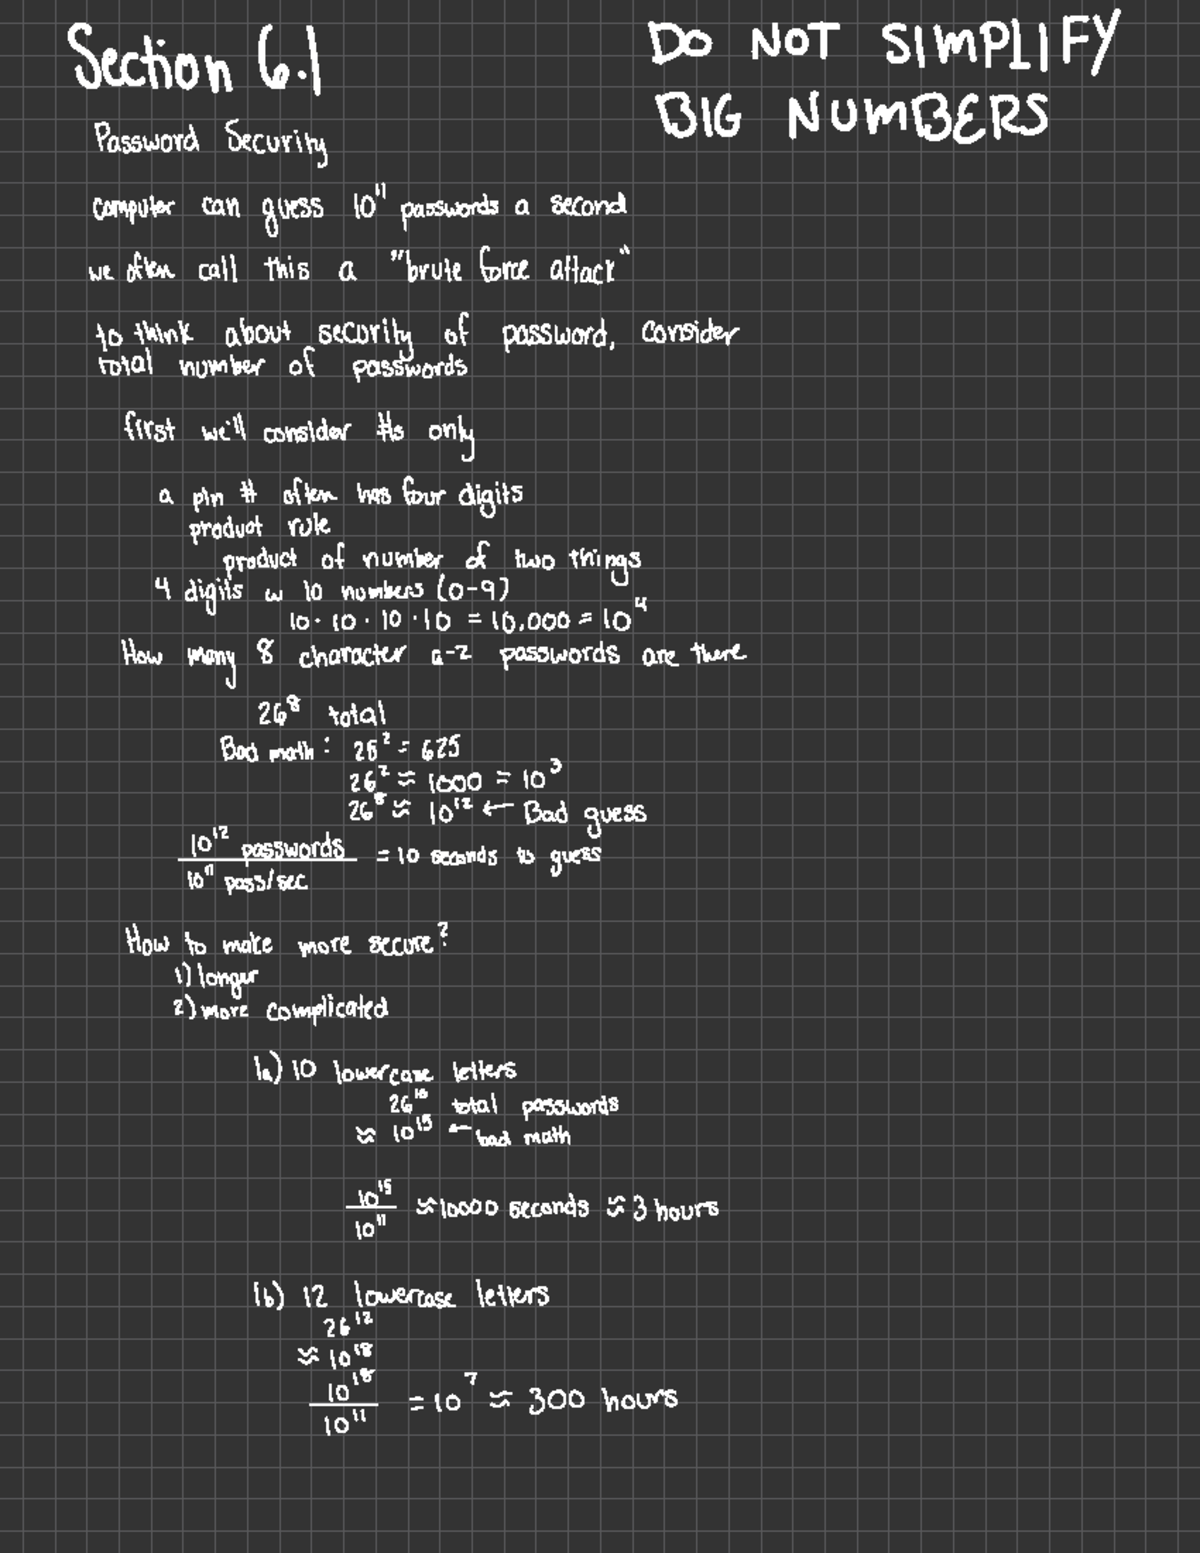 Section 6.1
DO NOT SIMPLIFY
BIG NUMBERS
Password Security
computer can guess 10¹¹ passwords a second
we often call this a "brute force attack"
to think about security of password, consider
total number of passwords
first we'll consider #s only
a pin # often has four digits
product rule
product of number of two things
4 digits w 10 numbers (0-9)
10 · 10 · 10 · 10 = 10,000 = 10⁴
How many 8 character a-z passwords are there
26⁸ total
Bad math: 25² = 625
26² ≈ 1000 = 10³
26⁸ ≈ 10¹² ← Bad guess
10¹² passwords
= 10 seconds to guess
10¹¹ pass/sec
How to make more secure?
1) longer
2) more complicated
1a) 10 lowercase letters
26¹⁰ total passwords
≈ 10¹⁵ ← bad math
10¹⁵
≈ 10000 seconds ≈ 3 hours
10¹¹
1b) 12 lowercase letters
26¹²
≈ 10¹⁸
10¹⁸
= 10⁷ ≈ 300 hours
10¹¹